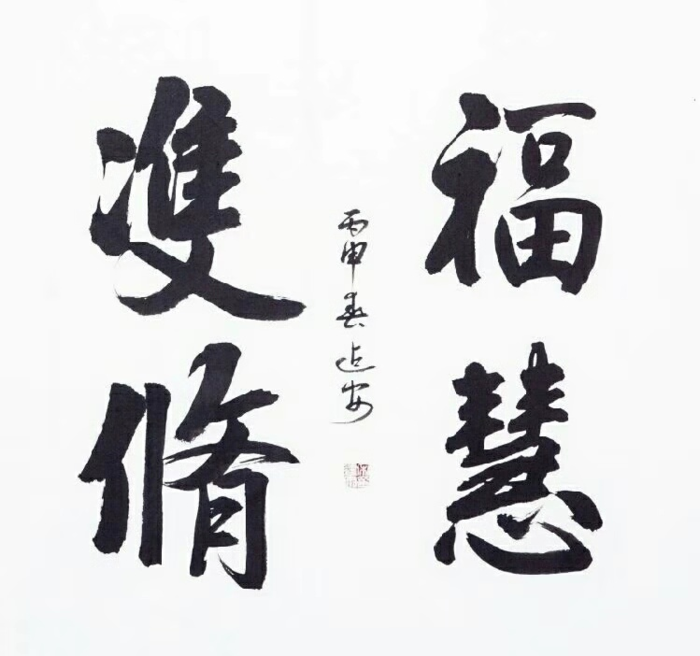 福慧
丙申春安
雙脩